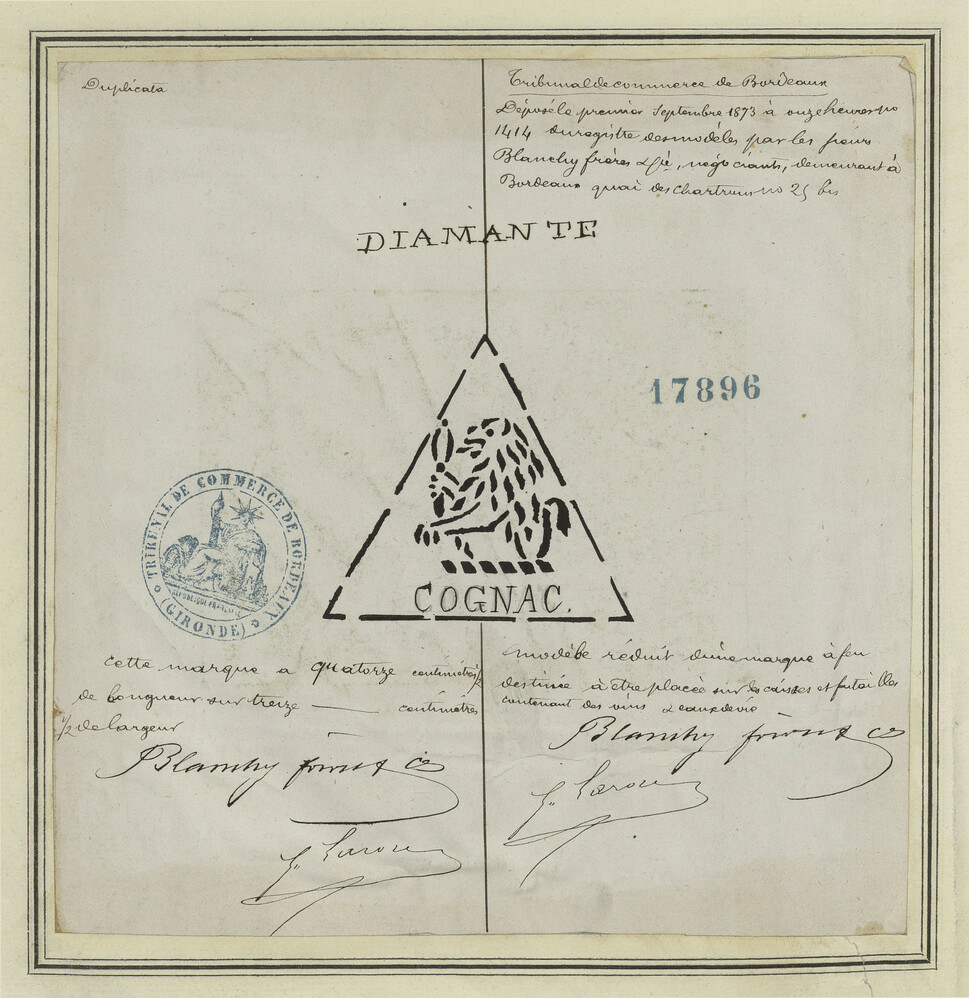 Duplicata
Tribunal de commerce de Bordeaux
Déposé le premier Septembre 1873 à onze heures no
1414 du registre des modèles par les sieurs
Blanchy frères & Cie, négociants, demeurant à
Bordeaux quai des Chartrons no 25 bis
DIAMANTE
17896
TRIBUNAL DE COMMERCE DE BORDEAUX
RÉPUBLIQUE FRANÇAISE
(GIRONDE)
COGNAC.
cette marque a quatorze centimètres 1/2
de longueur sur treize — centimètres
1/2 de largeur
Blanchy frères & Ce
modèle réduit d'une marque à feu
destinée à être placée sur les caisses et futailles
contenant des vins & eaux de vie
Blanchy frères & Ce